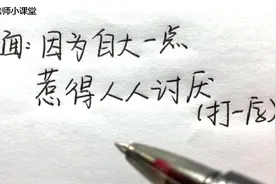 师小课堂
面:因为自大一点
惹得人人讨厌
(打一字)